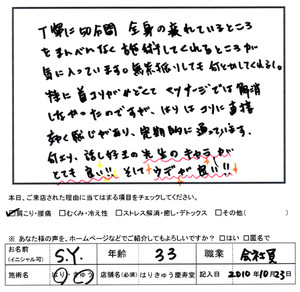 丁寧に問診 全身の疲れているところ
をまんべんなく施術してくれるところが
気に入っています。無茶振りしても何とかしてくれるし。
特に首コリがひどくてマッサージでは解消
しなかったのですが、はりはコリに直接
効く感じがあり、定期的に通っています。
何より、話し好きの先生のキャラが
とても良い!! そして ウデが良い!!
本日、ご来店された理由に当てはまる項目をチェックしてください。
☑肩こり・腰痛 □むくみ・冷え性 □ストレス解消・癒し・デトックス □その他( )
※ あなた様の声を、ホームページなどでご紹介してもよろしいですか? □はい □匿名で
お名前 (イニシャル可) S.Y. 年齢 33 職業 会社員
施術名 はり・きゅう 店舗名(必須) はりきゅう慶寿堂 記入日 2010年10月23日